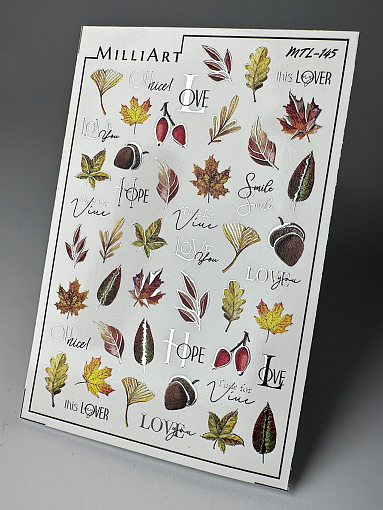 MILLIART
MTL-145
OH nice!
LOVE
this LOVER
LOVE You
HOPE
Smile
Smile
Time for
Vine
Time for
Vine
LOVE You
LOVE you
OH nice!
HOPE
LOVE
Time for
Vine
this LOVER
LOVE you